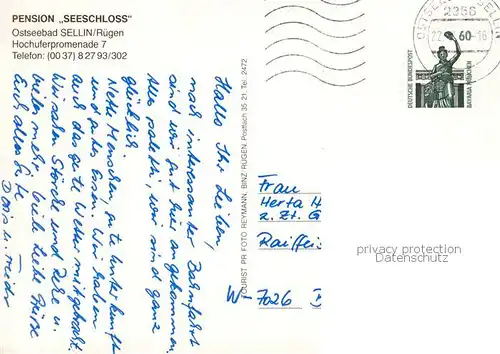 PENSION „SEESCHLOSS"
Ostseebad SELLIN/Rügen
Hochuferpromenade 7
Telefon: (00 37) 8 27 93/302
Hallo Ihr Lieben,
nach interessanter Bahnfahrt
sind wir gut hier angekommen.
Alles palletti, wir sind ganz
glücklich.
Nette Menschen, gute Unterkunft
und gutes Essen. Wir haben
auch das gute Wetter mitgebracht.
Wir sahen Störche und Rehe u.
vieles mehr. Viele liebe Grüße
Euch alles Gute
Doris u.
TOURIST PR FOTO REYMANN, BINZ RÜGEN, Postfach 35 21, Tel. 2472
OSTSEEBAD SELLIN
2356
22
60
DEUTSCHE BUNDESPOST
BAVARIA MÜNCHEN
Frau
Herta H
z. Zt. G
Raiffei
W- 7026
privacy protection
Datenschutz